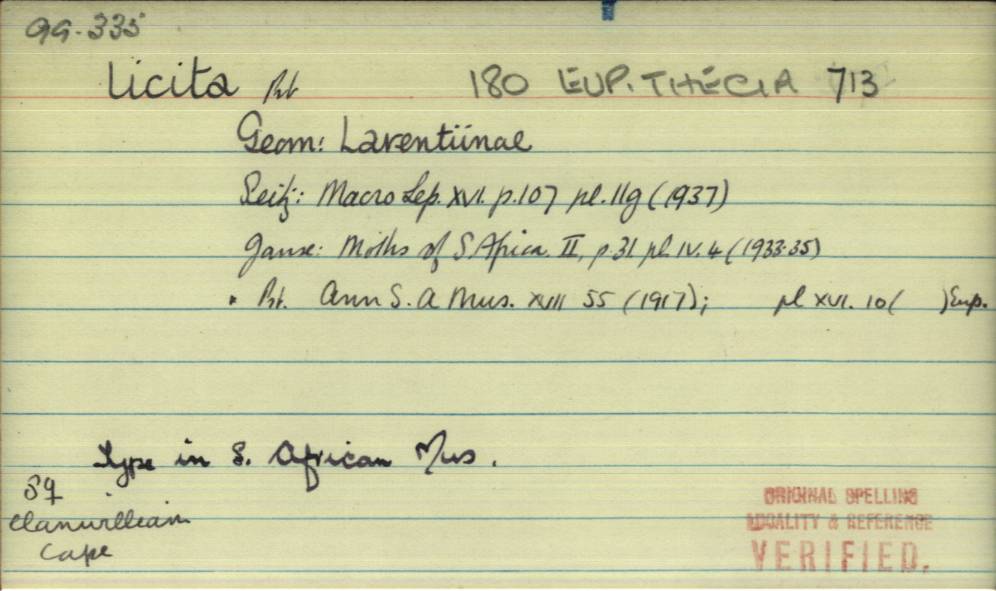 99.335
licita Prt 180 EUP. THECIA 713
Geom: Larentiinae
Seitz: Macro Lep. XVI. p.107 pl. 11g (1937)
Janse: Moths of S Africa. II, p 31 pl IV. 4 (1933-35)
* Prt. Ann S. A Mus. XVII 55 (1917); pl XVI. 10 ( ) Eup.
Type in S. African Mus.
Clanwilliam
Cape
ORIGINAL SPELLING
LOCALITY & REFERENCE
VERIFIED.